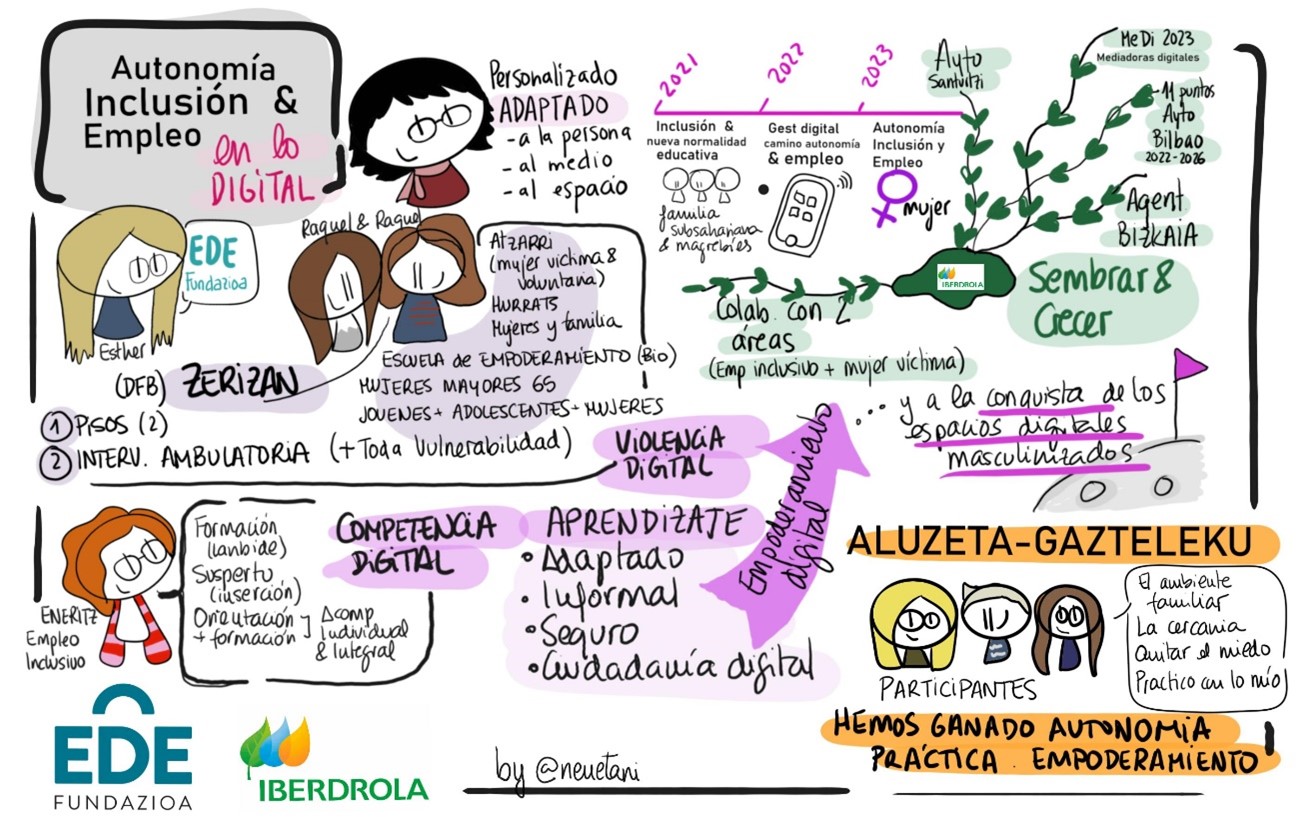 Autonomía
Inclusión &
Empleo
en lo
DIGITAL
Personalizado
ADAPTADO
- a la persona
- al medio
- al espacio
EDE
Fundazioa
Esther
Raquel & Raquel
(DFB) ZERIZAN
1 PISOS (2)
2 INTERV. AMBULATORIA (+Toda Vulnerabilidad)
ATZARRI
(mujer victima &
voluntaria)
HURRATS
Mujeres y familia
ESCUELA de EMPODERAMIENTO (Bio)
MUJERES MAYORES 65
JOVENES+ ADOLESCENTES+ MUJERES
VIOLENCIA
DIGITAL
2021
2022
2023
Inclusión &
nueva normalidad
educativa
familia
subsahariana
& magrebíes
Gest digital
camino autonomía
& empleo
Autonomía
Inclusión y
Empleo
mujer
Ayto
Santurtzi
MeDi 2023
Mediadoras digitales
11 puntos
Ayto
Bilbao
2022-2026
Agent
BIZKAIA
IBERDROLA
Sembrar &
Crecer
Colab. con 2
áreas
(Emp inclusivo + mujer víctima)
... y a la conquista de los
espacios digitales
masculinizados
ENERITZ
Empleo
Inclusivo
Formación
(lanbide)
Suspertu
(inserción)
Orientación
+ formación
Δcomp
Individual
& Integral
COMPETENCIA
DIGITAL
APRENDIZATE
• Adaptado
• Informal
• Seguro
• Ciudadanía digital
Empoderamiento
digital
ALUZETA-GAZTELEKU
PARTICIPANTES
El ambiente
familiar
La cercania
Quitar el miedo
Practico con lo mío
HEMOS GANADO AUTONOMÍA
PRÁCTICA. EMPODERAMIENTO
EDE
FUNDAZIOA
IBERDROLA
by @neuetani